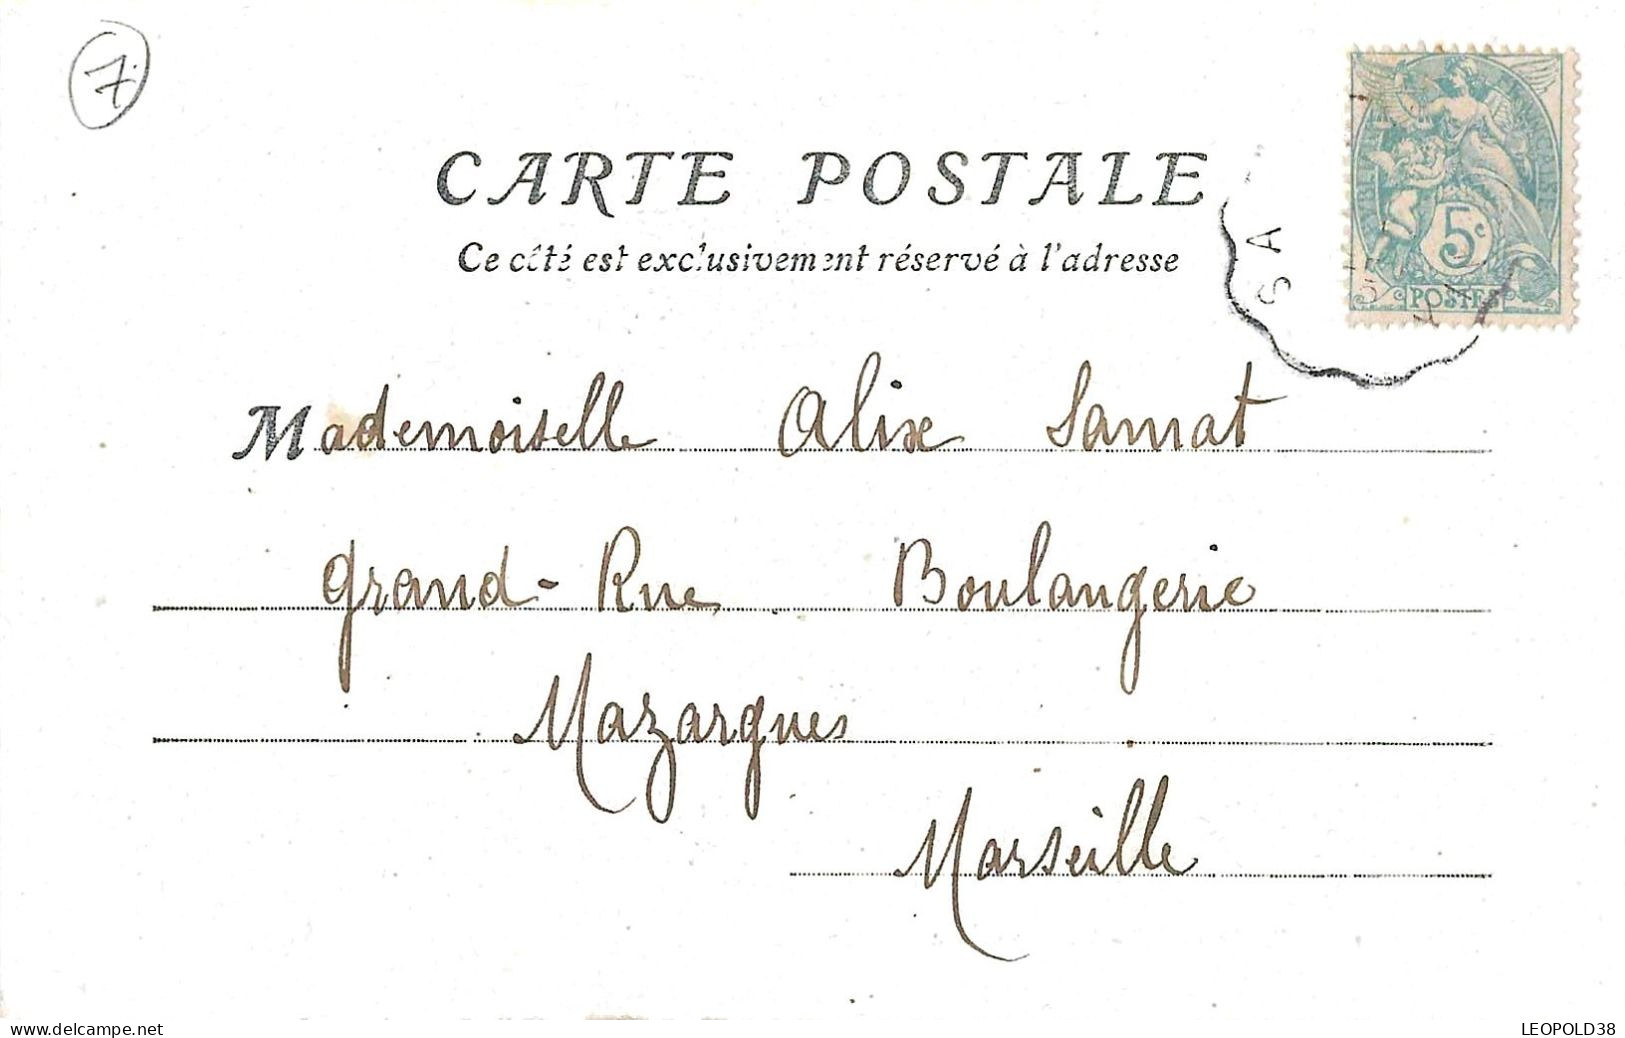 7
CARTE POSTALE
Ce côté est exclusivement réservé à l'adresse
RÉPUBLIQUE FRANÇAISE
5c
POSTES
S A
Mademoiselle Alixe Samat
Grand-Rue Boulangerie
Mazargues
Marseille
www.delcampe.net
LEOPOLD38